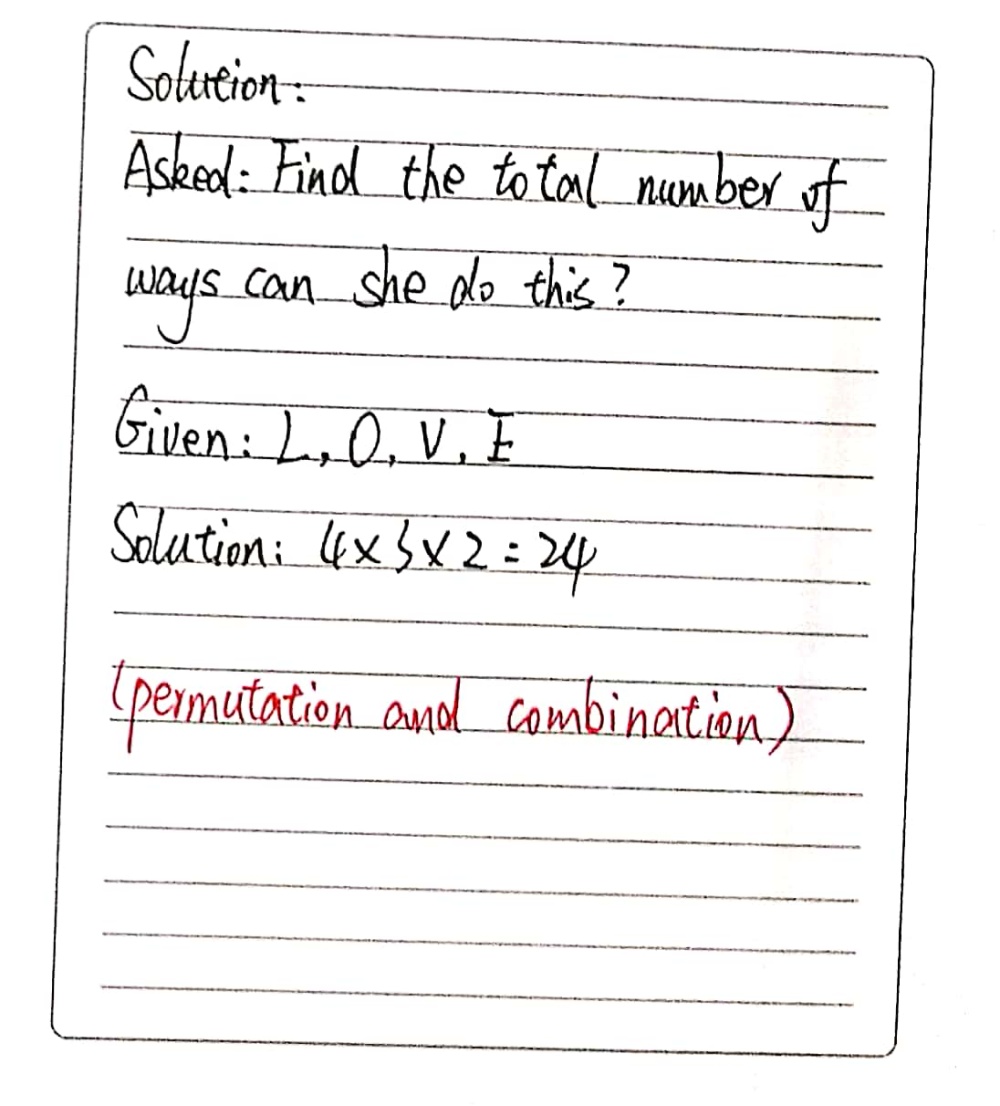 Solution:
Asked: Find the total number of
ways can she do this?
Given: L, O, V, E
Solution: 4x3x2=24
(permutation and combination)